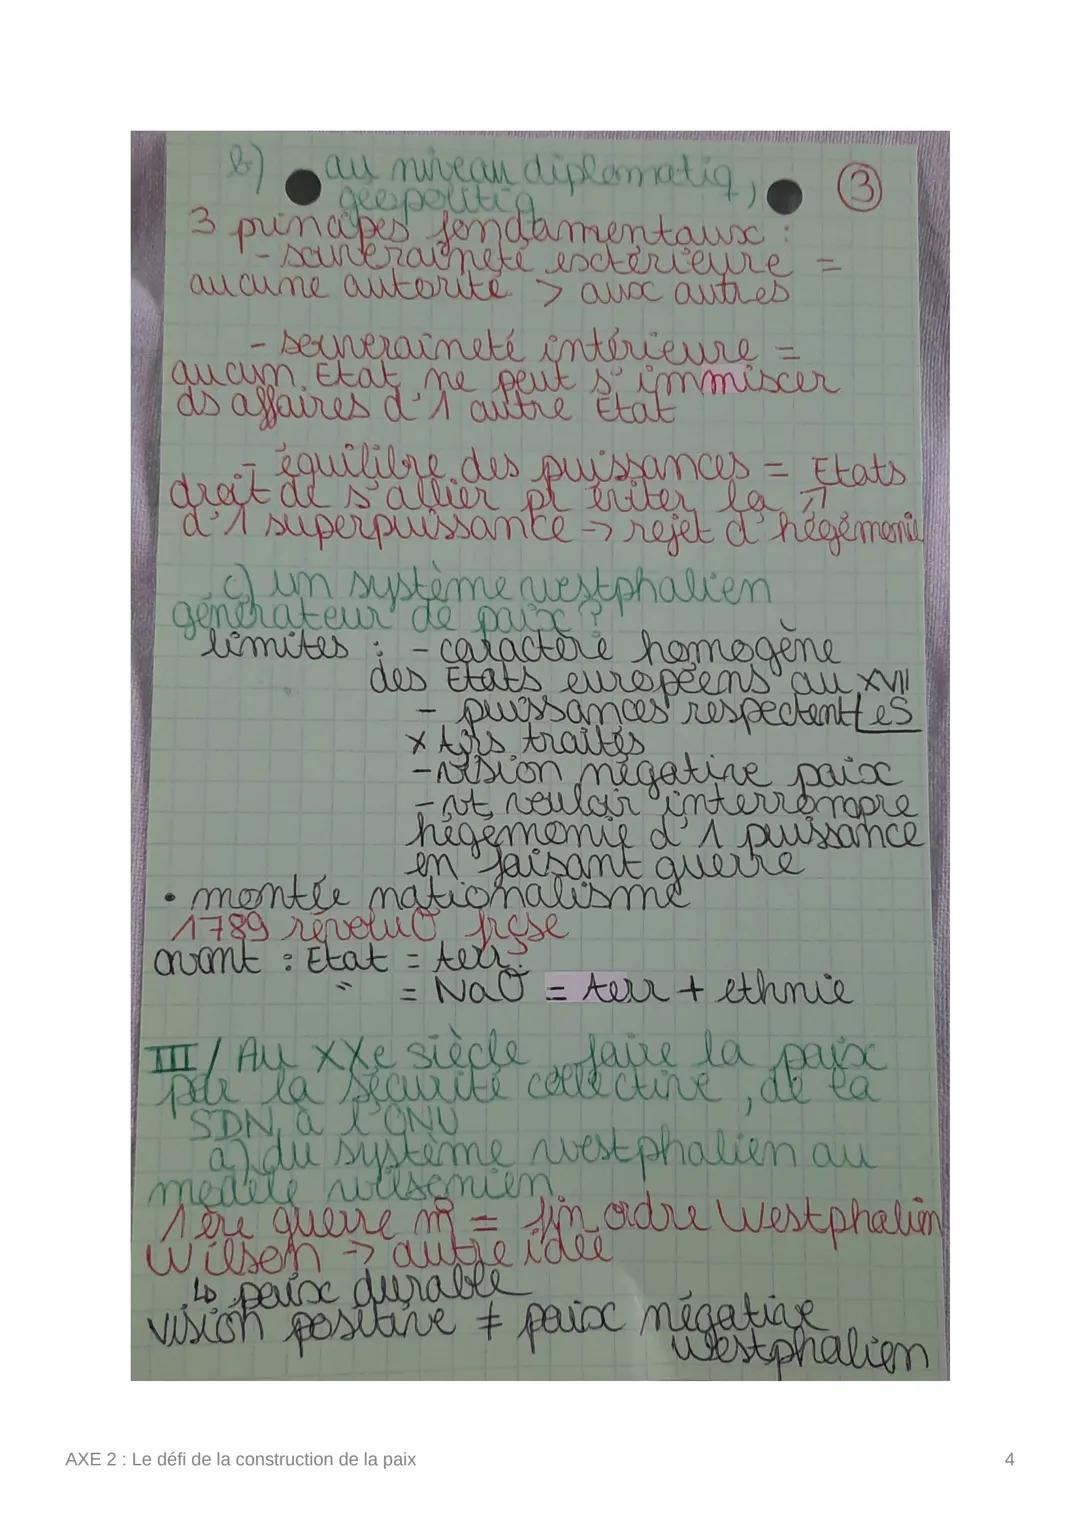 b) au niveau diplomatiq, ③
géopolitiq
3 principes fondamentaux :
- souveraineté extérieure =
aucune autorité > aux autres
- souveraineté intérieure =
aucun Etat ne peut s'immiscer
ds affaires d'1 autre Etat
- équilibre des puissances = Etats
droit de s'allier pr éviter la ↗
d'1 superpuissance → rejet d'hégémonie
c) un système westphalien
générateur de paix ?
limites : - caractère homogène
des Etats européens au XVII
- puissances respectent les
x tjrs traités
- vision négative paix
- vt vouloir interrompre
hégémonie d'1 puissance
en faisant guerre
• montée nationalisme
1789 révoluO frçse
avant : Etat = terr.
" = NaO = terr + ethnie
III/ Au XXe siècle faire la paix
par la sécurité collective, de la
SDN à l'ONU
a) du système westphalien au
modèle wilsonien
1ère guerre m = fin ordre Westphalien
Wilson → autre idée
↳ paix durable
vision positive ≠ paix négative
westphalien
AXE 2 : Le défi de la construction de la paix 4